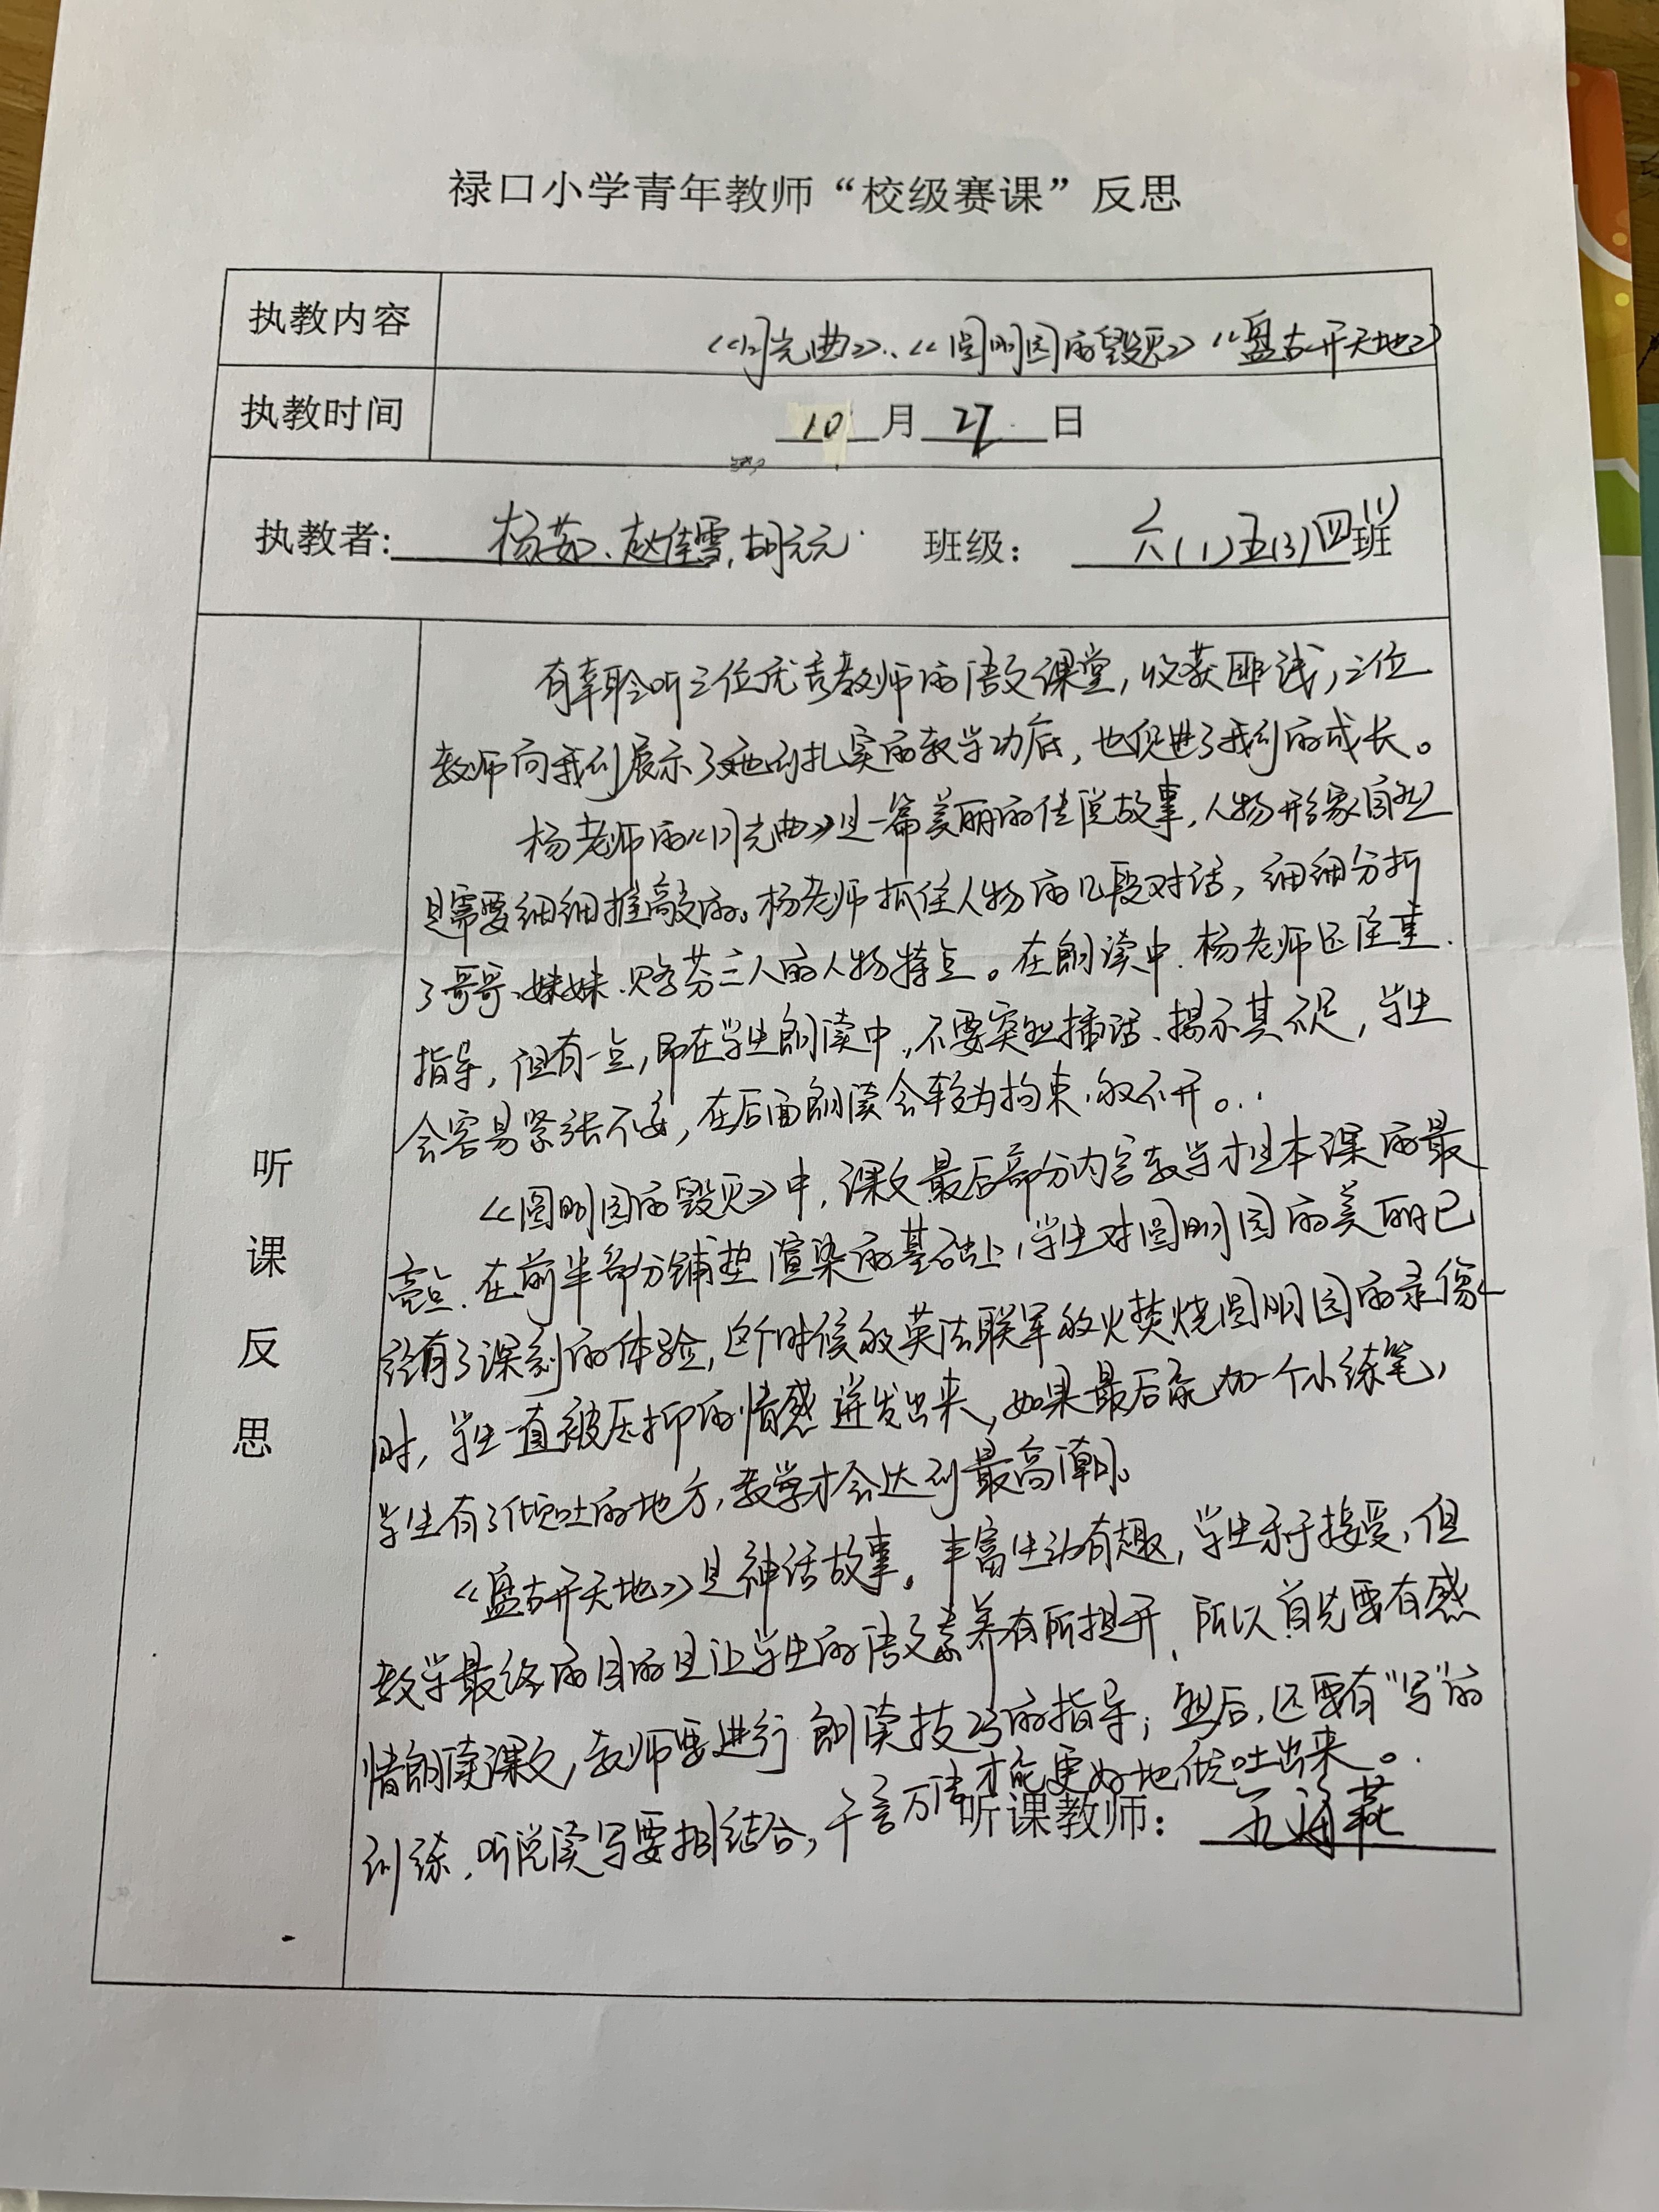 禄口小学青年教师“校级赛课”反思
执教内容 《月光曲》、《圆明园的毁灭》《盘古开天地》
执教时间 10月27日
执教者: 杨茹、赵佳雪,胡元元 班级: 六(1)五(3)四(1)班
听课反思
有幸聆听三位优秀教师的语文课堂,收获匪浅,三位
教师向我们展示了她们扎实的教学功底,也促进了我们的成长。
杨老师的《月光曲》是一篇美丽的传说故事,人物形象自然
是需要细细推敲的。杨老师抓住人物的几段对话,细细分析
了哥哥、妹妹、贝多芬三人的人物特点。在朗读中,杨老师还注重
指导,但有一点,即在学生朗读中,不要突然插话、揭示其不足,学生
会容易紧张不安,在后面朗读会较为拘束,放不开。
《圆明园的毁灭》中,课文最后部分内容教学才是本课的最
亮点.在前半部分铺垫渲染的基础上,学生对圆明园的美丽已
经有了深刻的体验,这个时候放英法联军放火焚烧圆明园的录像
时,学生一直被压抑的情感迸发出来,如果最后能加一个小练笔,
学生有了倾吐的地方,教学才会达到最高潮。
《盘古开天地》是神话故事,丰富生动有趣,学生乐于接受,但
教学最终的目的是让学生的语文素养有所提升,所以首先要有感
情朗读课文,教师要进行朗读技巧的指导;然后,还要有“写”的
训练,听说读写要相结合,千言万语才能更好地倾吐出来。
听课教师: